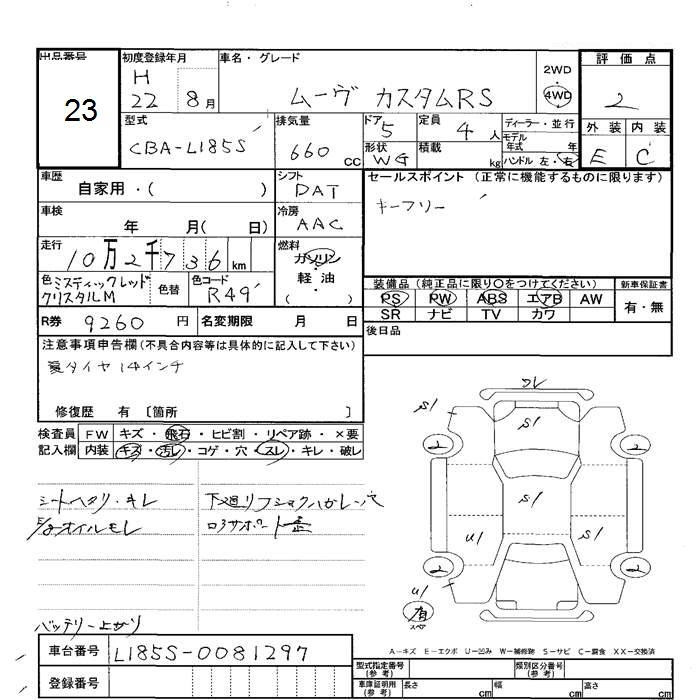 出品番号
23
初度登録年月
H
22 8月
車名・グレード
ムーヴ カスタムRS
2WD
・
4WD
評価点
2
外装 内装
E C
型式
CBA-L185S
排気量
660 cc
ドア
5
定員
4人
形状
WG
積載
kg
ディーラー・並行
モデル
年式 年
ハンドル 左・右
車歴
自家用・( )
シフト
DAT
セールスポイント (正常に機能するものに限ります)
キーフリー
車検
年 月( 日)
冷房
AAC
走行
10万2千736km
燃料
ガソリン
・
軽・油
( )
色 ミスティックレッド
クリスタルM
色替
色コード
R49
装備品 (純正品に限り〇をつけてください)
新車保証書
PS PW ABS エアB AW
有・無
SR ナビ TV カワ
R券 9260円
名変期限 月 日
後日品
注意事項申告欄 (不具合内容等は具体的に記入して下さい)
夏タイヤ14インチ
修復歴 有 〔箇所 〕
検査員
記入欄
FW キズ・飛石・ヒビ割・リペア跡・×要
内装 キズ・汚レ・コゲ・穴・スレ・キレ・破レ
シートヘタリ・キレ
E/gオイルモレ
下廻リフショクハガレ・穴
ロアサポート歪
バッテリー上がり
ワレ
S1
S1
2
2
S1
S1
U1
2
2
U1
有
スペア
A-キズ E-エクボ U-凹み W-補修跡 S-サビ C-腐食 XX-交換済
車台番号
L185S-0081297
登録番号
型式指定番号
(参考)
類別区分番号
(参考)
車庫証明用
(参考)
長さ cm
幅 cm
高さ cm